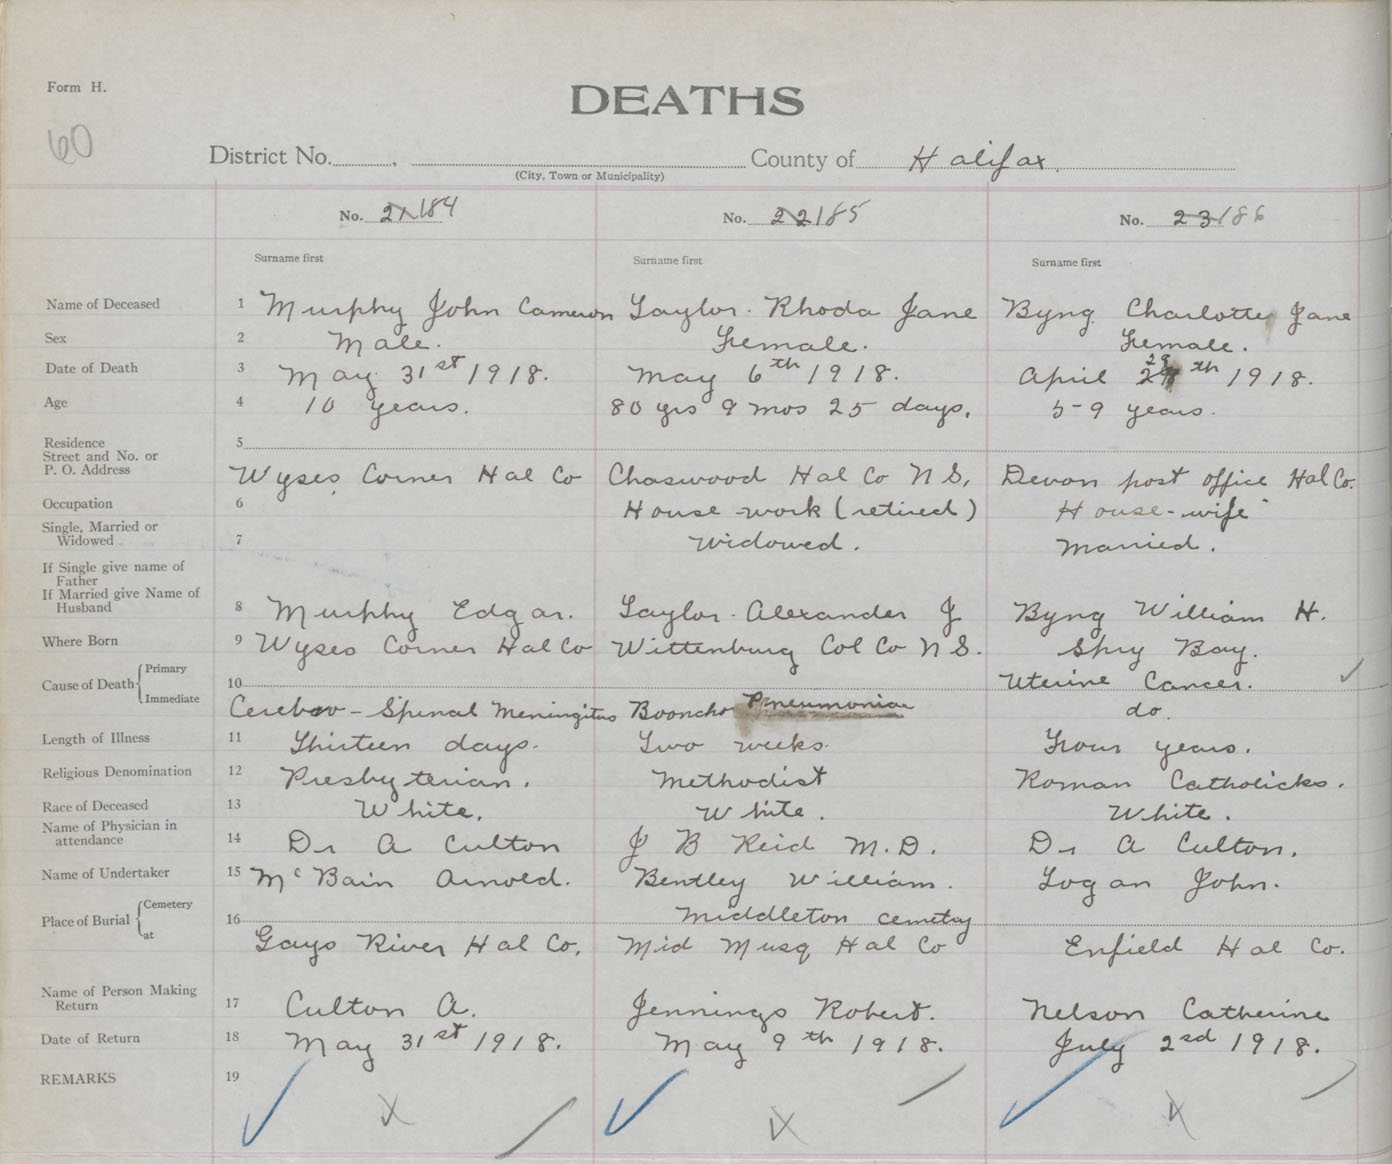 Form H.
DEATHS
60
District No. , County of Halifax.
(City, Town or Municipality)
No. 21 184 No. 22 185 No. 23 186
Surname first Surname first Surname first
Name of Deceased 1 Murphy John Cameron Taylor. Rhoda Jane Byng Charlotte Jane
Sex 2 Male. Female. Female.
Date of Death 3 May 31st 1918. May 6th 1918. April 29th 1918.
Age 4 10 years. 80 yrs 9 mos 25 days. 5-9 years.
Residence 5
Street and No. or
P. O. Address Wyses Corner Hal Co Chaswood Hal Co N S. Devon post office Hal Co.
Occupation 6 House-work (retired) House-wife
Single, Married or
Widowed 7 Widowed. Married.
If Single give name of
Father
If Married give Name of
Husband 8 Murphy Edgar. Taylor. Alexander J Byng William H.
Where Born 9 Wyses Corner Hal Co Wittenburg Col Co N S. Spry Bay.
Cause of Death Primary 10 Uterine Cancer.
Immediate Cerebro-Spinal Meningitus Booncho Pneumonia do.
Length of Illness 11 Thirteen days. Two weeks. Four years.
Religious Denomination 12 Presbyterian. Methodist Roman Catholicks.
Race of Deceased 13 White. White. White.
Name of Physician in
attendance 14 Dr A Culton J B Reid M.D. Dr A Culton.
Name of Undertaker 15 McBain Arnold. Bentley William. Logan John.
Place of Burial Cemetery 16 Middleton cemetey
at Gays River Hal Co. Mid Musq Hal Co Enfield Hal Co.
Name of Person Making
Return 17 Culton A. Jennings Robert. Nelson Catherine
Date of Return 18 May 31st 1918. May 9th 1918. July 2sd 1918.
REMARKS 19